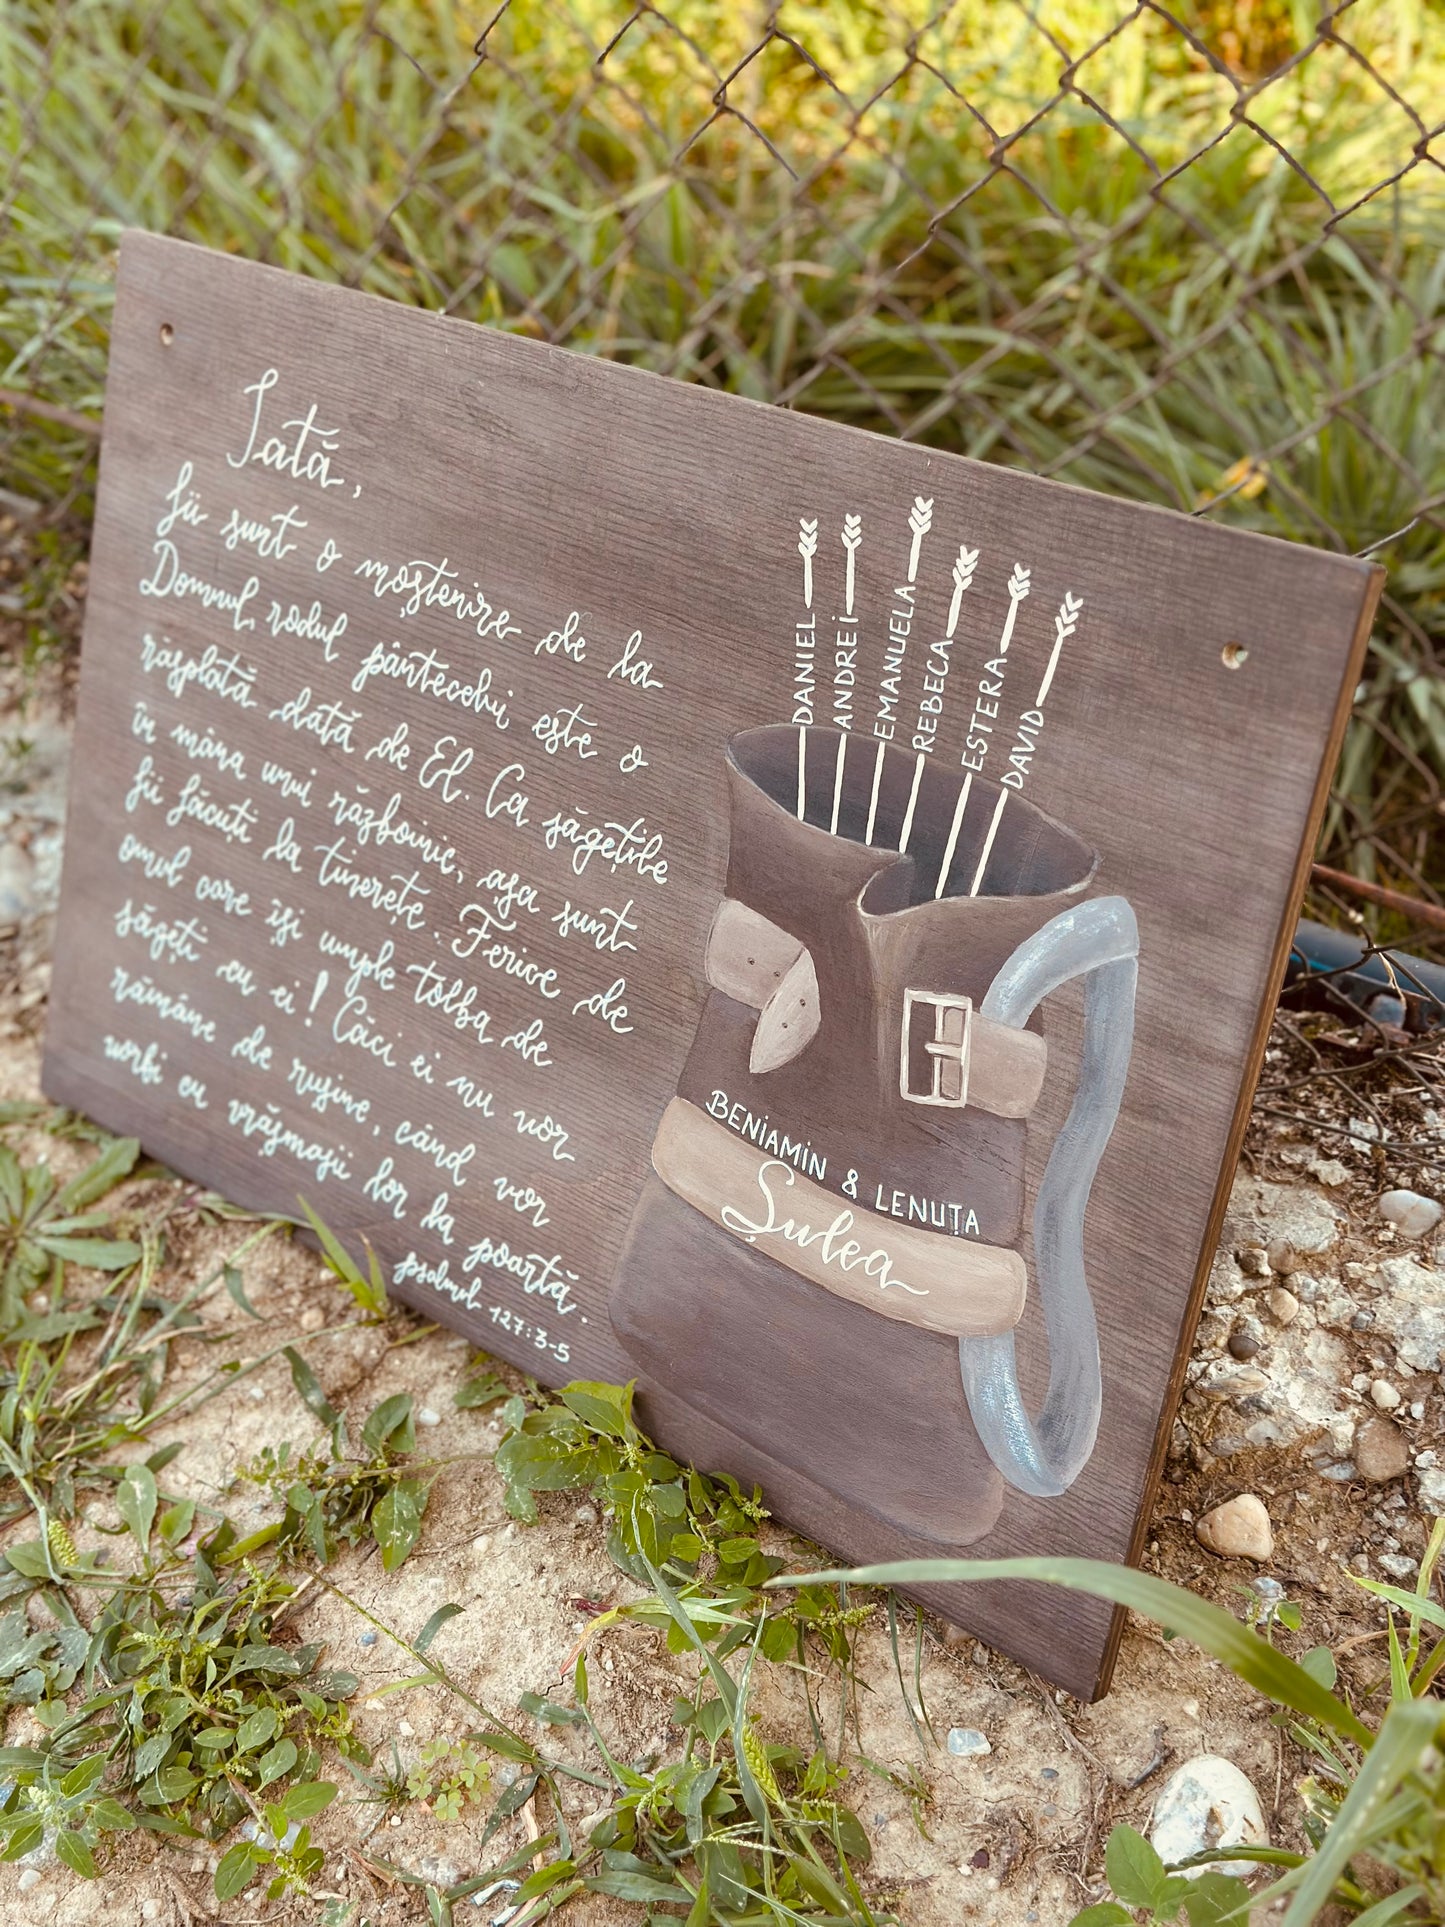 Iată,
fii sunt o moștenire de la
Domnul, rodul pântecelui este o
răsplată dată de El. Ca săgețile
în mâna unui războinic, așa sunt
fii făcuți la tinerețe. Ferice de
omul care își umple tolba de
săgeți cu ei! Căci ei nu vor
rămâne de rușine, când vor
vorbi cu vrăjmașii lor la poartă.
psalmul 127:3-5
DANIEL
ANDREI
EMANUELA
REBECA
ESTERA
DAVID
BENIAMIN & LENUȚA
Șulea